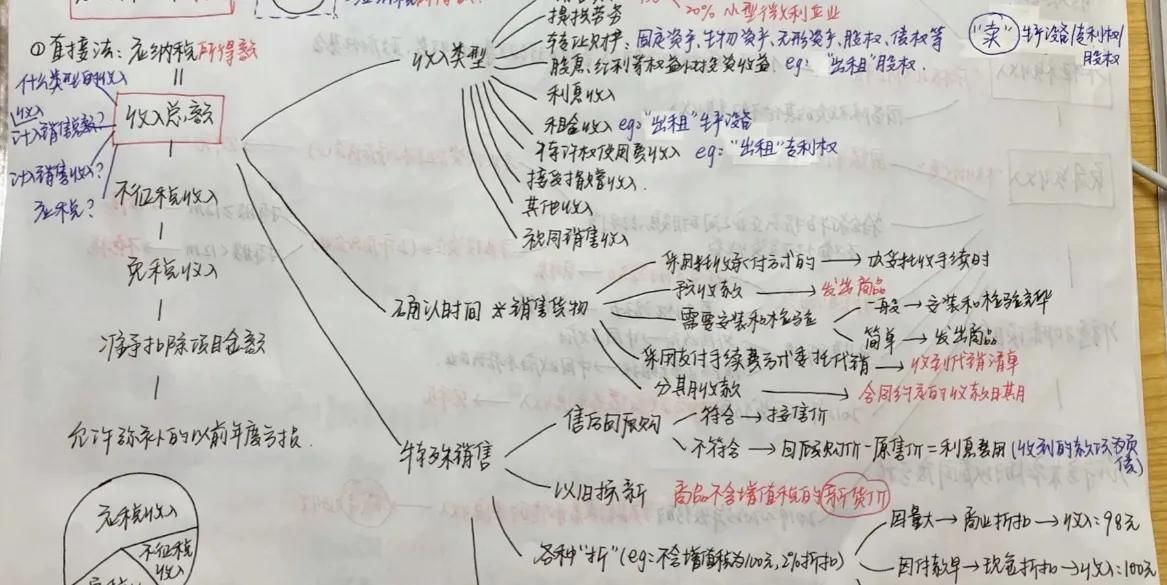 20% 小型微利企业
提供劳务
①直接法：应纳税所得额
收入类型
转让财产：固定资产、生物资产、无形资产、股权、债权等
"卖"生产设备/专利权/
股权
股息、红利等权益性投资收益. eg："出租"股权.
利息收入
租金收入 eg："出租"生产设备
特许权使用费收入 eg："出租"专利权
接受捐赠收入.
其他收入
视同销售收入
什么类型的收入
=
收入总额
收入
计入销售总额?
计入销售收入?
应税?
不征税收入
免税收入
准予扣除项目金额
允许弥补的以前年度亏损.
确认时间 ※销售货物
采用托收承付方式的→办妥托收手续时
预收款→发出商品
需要安装和检验
一般→安装和检验完毕
简单→发出商品
采用支付手续费方式委托代销→收到代销清单
分期收款→合同约定的收款日期
特殊销售
售后回购
符合→按售价
不符合→回购价-原售价=利息费用(收到的款项为负债)
以旧换新 商品不含增值税的新货价
各种"折"(eg：不含增值税为100元, 2%折扣)
因量大→商业折扣→收入=98元
因付款早→现金折扣→收入=100元
应税收入
不征税
收入